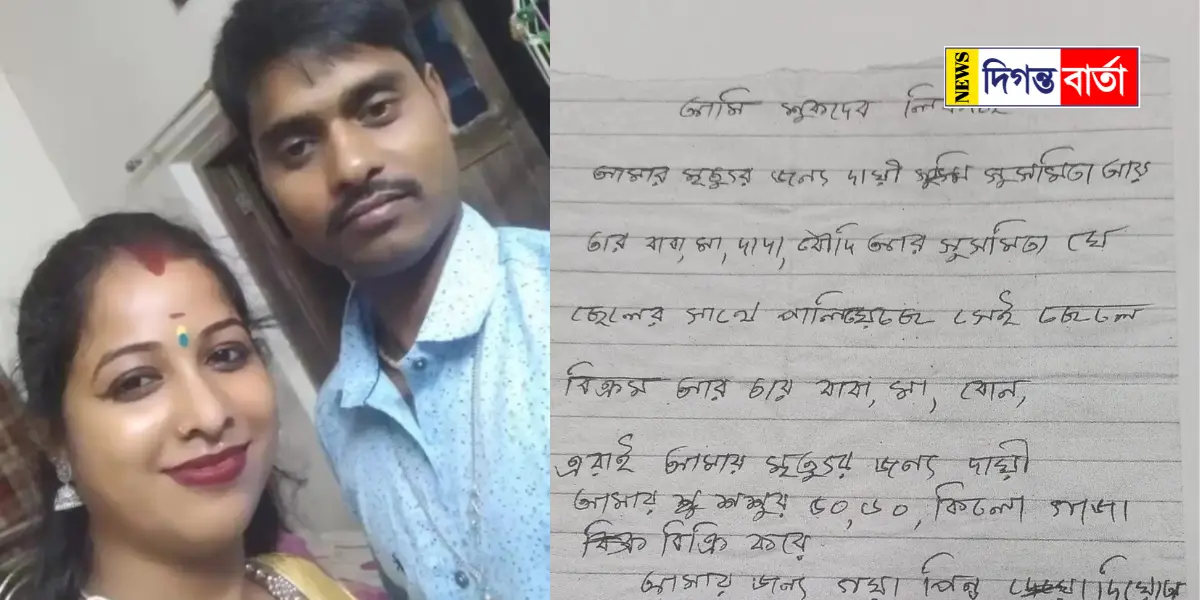 NEWS দিগন্ত বার্তা
আমি শুকদেব
আমার মৃত্যুর জন্য দায়ী সুসমিতা আর
তার বাবা, মা, দাদা, বৌদি আর সুসমিতা যে
ছেলের সাথে পালিয়েছে সেই ছেলে
বিক্রম আর তার বাবা, মা, বোন,
এরাই আমার মৃত্যুর জন্য দায়ী
আমার শ্বশুর ৫০,৬০, কিলো গাজা
বিক্রি করে
আমার জন্য গয়া পিন্ড